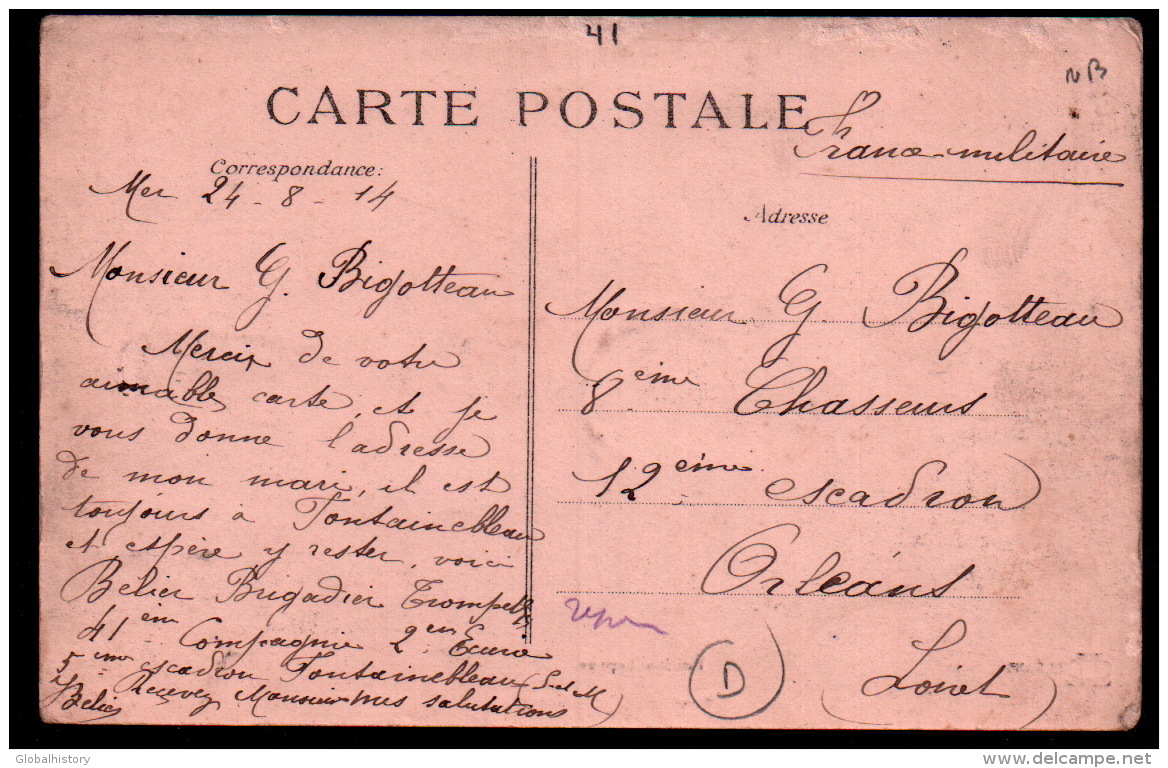 41
NB
CARTE POSTALE
France militaire
Correspondance:
Mer 24 - 8 - 14
Monsieur G. Bigotteau
Merci de votre
aimable carte, et je
vous donne l'adresse
de mon mari, il est
toujours à Fontainebleau
et espère y rester, voici
Bélier Brigadier Trompette
41em Compagnie 2em Ecurie
5eme escadron Fontainebleau (S-et-M)
Recevez Monsieur mes salutations
Bélier
Adresse
Monsieur G. Bigotteau
8eme Chasseurs
12eme escadron
Orléans
(Loiret)
D
Globalhistory
delcampe.net